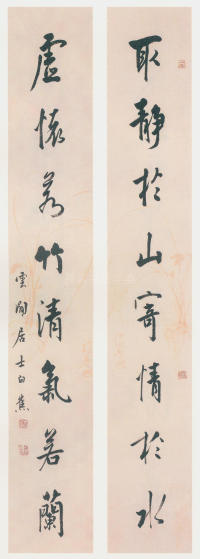 取静於山寄情於水
虚懷若竹清氣若蘭
雲間居士白蕉